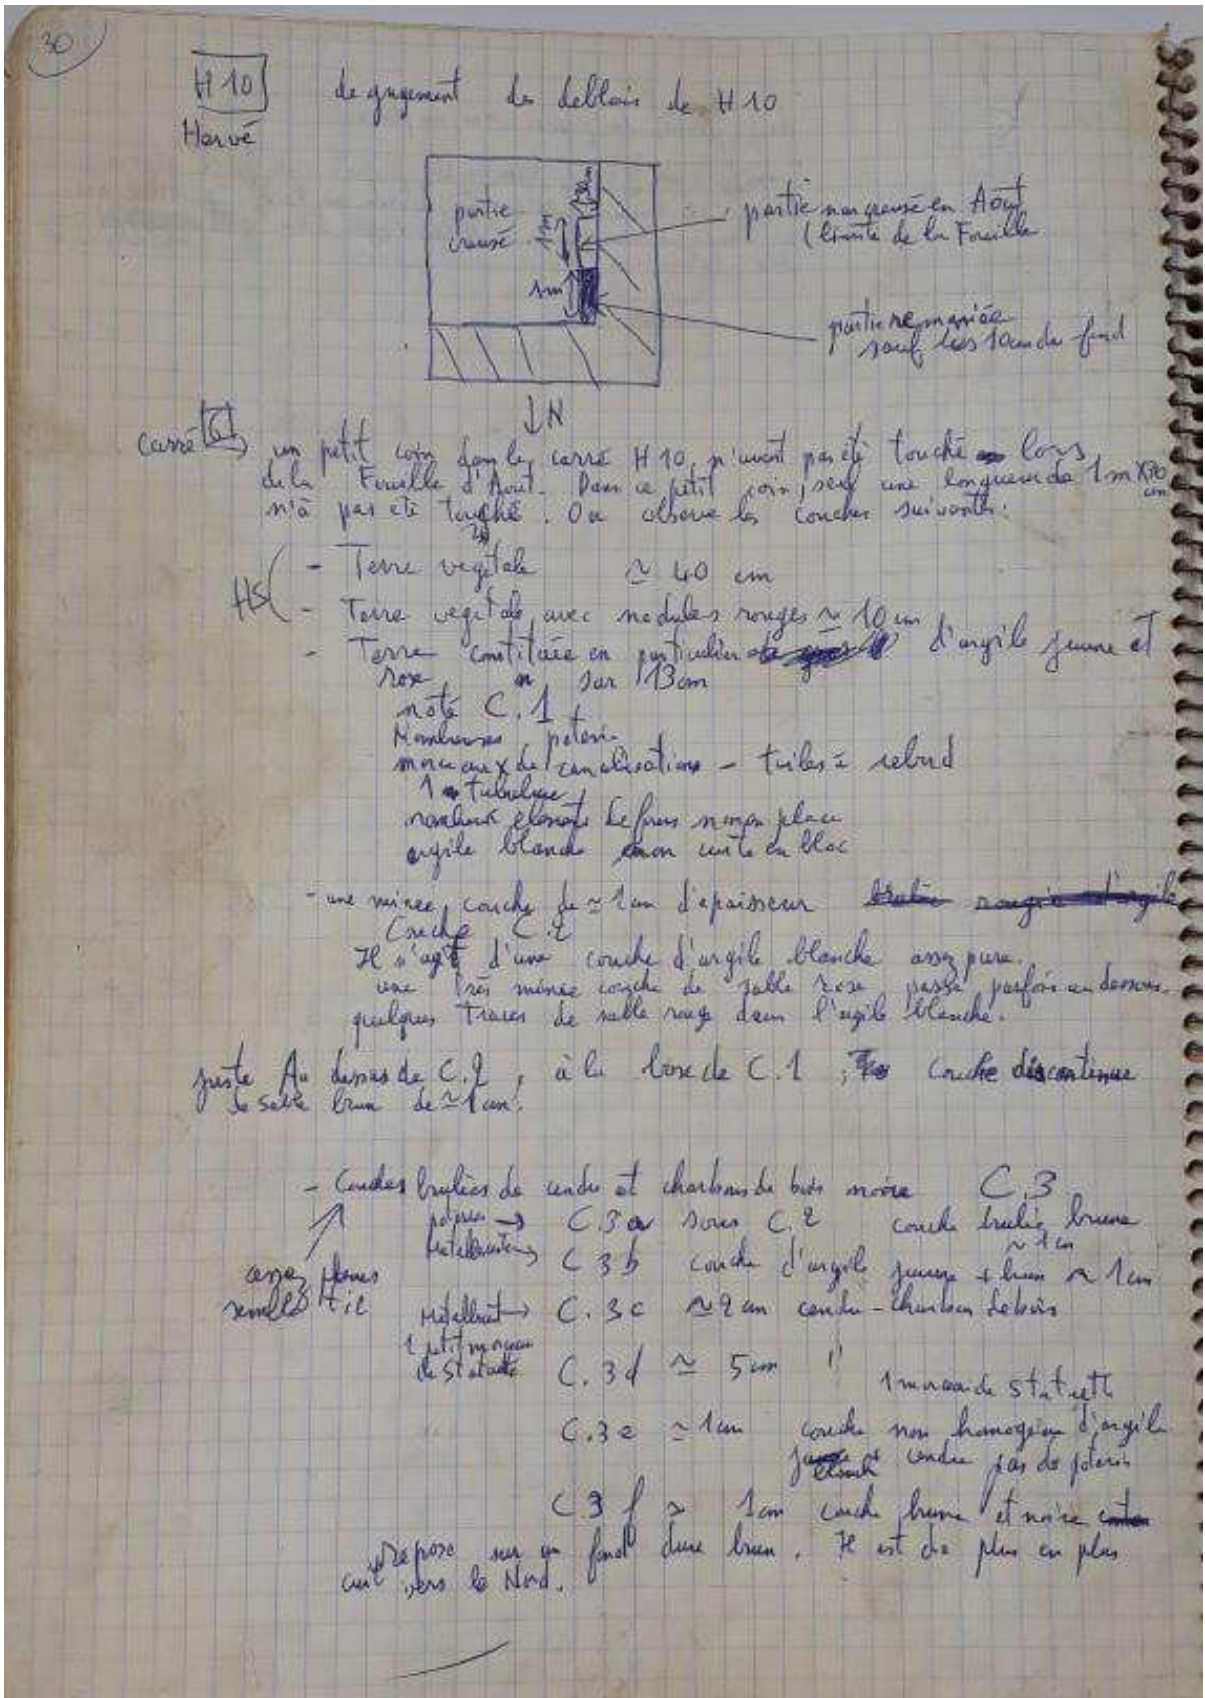 30
H 10
Hervé
degagement des deblais de H 10
partie
creusé
1m
1m
30cm
partie non creusé en Août
(limite de la Fouille
partie remaniée
sauf les 10cm du fond
↓N
Carré G un petit coin dans le carré H 10, n'avait pas été touché lors
de la Fouille d'Aout. Dans ce petit coin, seul une longueur de 1m X30
cm
n'à pas été touché. On observe les couches suivantes:
HS
- Terre vegetale ≃ 40 cm
- Terre vegetale avec nodules rouges ~ 10 cm
- Terre constituée en particulier d'argile jaune et
rose sur 13cm
noté C.1
Nombreuses poterie
morceaux de canalisations - tuiles à rebord
1 tubulure
nombreux éléments de fours non en place
argile blanche non cuite en bloc
- une mince couche de ≃ 1cm d'epaisseur brulée rougie d'argile
Couche C.2
Il s'agit d'une couche d'argile blanche assez pure.
une très mince couche de sable rose passe parfois au dessous.
quelques traces de sable rouge dans l'argile blanche.
juste Au dessus de C.2, à la base de C.1, couche discontinue
de sable brun de ≃ 1 cm.
- Couches brulées de cendre et charbons de bois noire C.3
poteries → C.3a sous C.2 couche brulée brune
~ 1 cm
Metallisantes → C 3b couche d'argile jaune + brun ~ 1cm
assez planes
semble t il
Metallisant → C.3c ≃ 2 cm cendre - charbon de bois
1 petit morceau
de Statuette
C.3d ≃ 5cm "
1 morceau de statuette
C.3e ≃ 1cm couche non homogène d'argile
blanche cendre pas de poterie
C 3 f ≃ 1cm couche brune et noire
repose sur un fond dure brun. Il est de plus en plus
cuit vers le Nord.